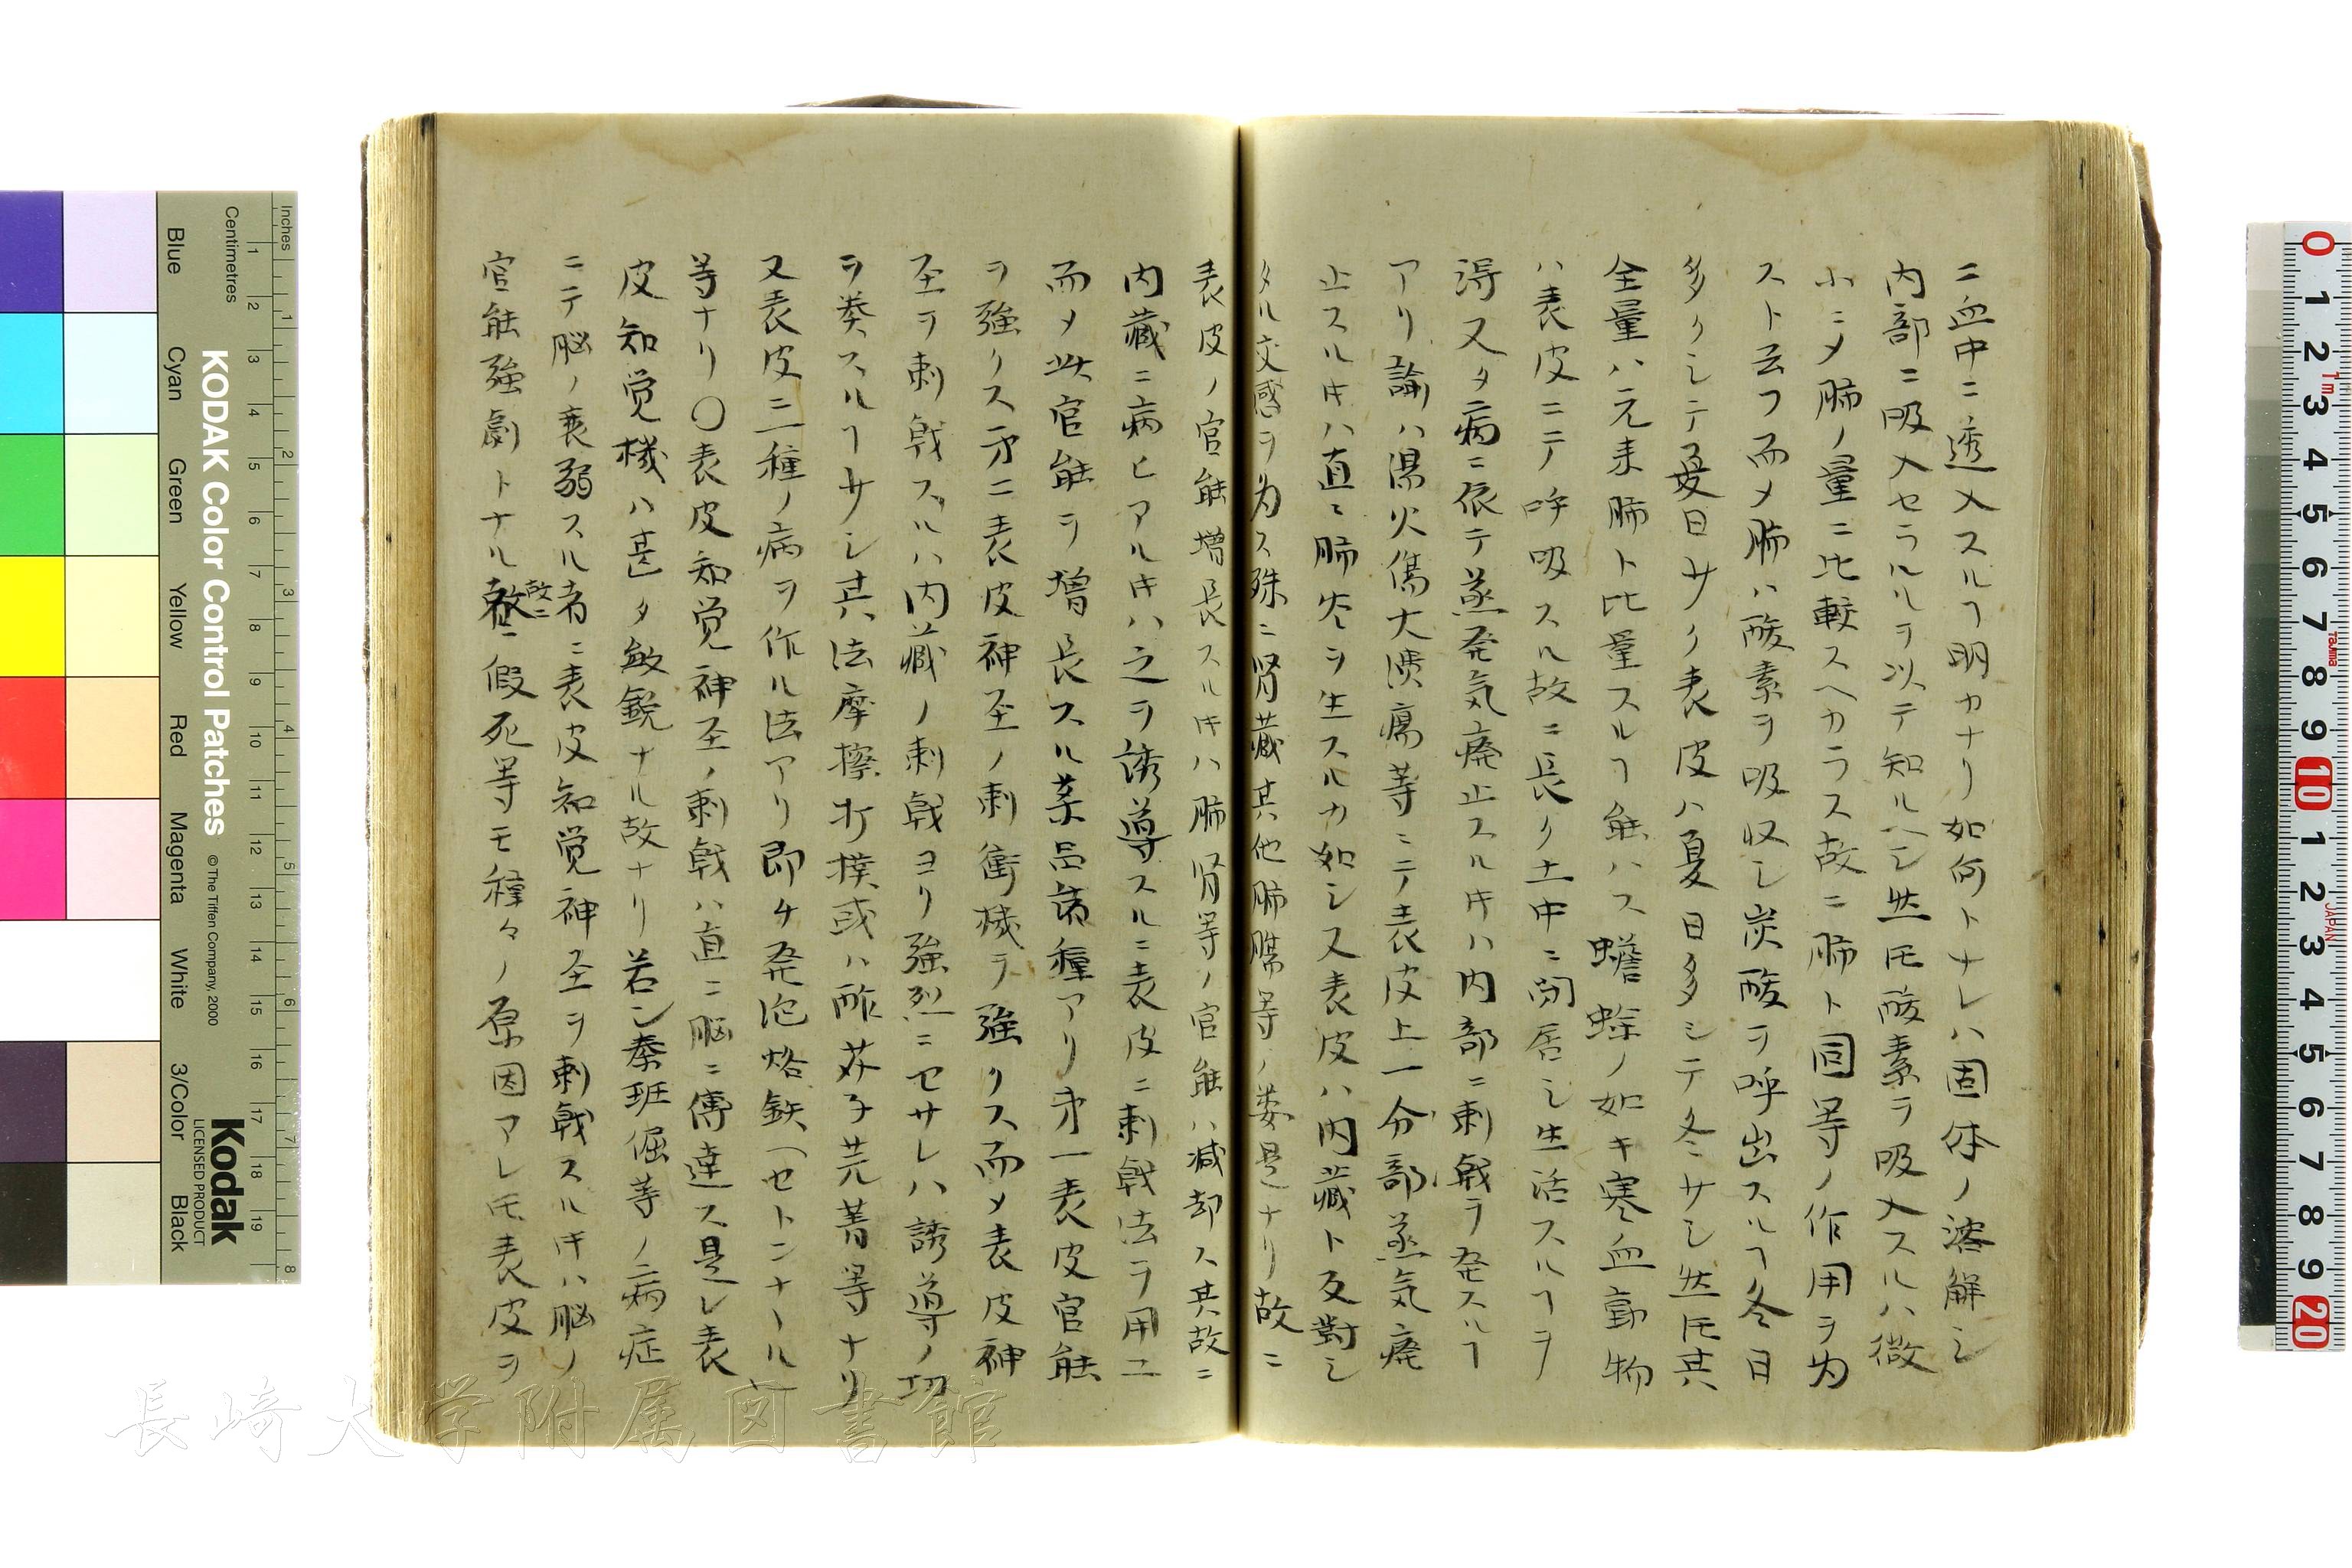 ニ血中ニ透入スルヿ明カナリ如何トナレハ固体ノ溶解シ
内部ニ吸入セラルヽヲ以テ知ルヘシ然𪜈酸素ヲ吸入スルハ微
小ニメ肺ノ量ニ比較スヘカラス故ニ肺ト同等ノ作用ヲ为
スト云フ而メ肺ハ酸素ヲ吸収シ炭酸ヲ呼出スルヿ冬日
多クシテ夏日サク表皮ハ夏日多シテ冬サシ然𪜈其
全量ハ元来肺ト比量スルヿ能ハス蟾蜍ノ如キ寒血動物
ハ表皮ニテ呼吸スル故ニ長ク土中ニ閉居シ生活スルヿヲ
得又タ病ニ依テ蒸発気廃止スル𪜈ハ内部ニ刺戟ヲ発スルヿ
アリ譣ハ湯火傷大潰瘍等ニテ表皮上一分部蒸気廃
止スル𪜈ハ直ニ肺炎ヲ生スルカ如シ又表皮ハ内蔵ト反對シ
タル交感ヲ为ス殊ニ腎蔵其他肺膓等ノ蔞是ナリ故ニ
表皮ノ官能增長スル𪜈ハ肺腎等ノ官能ハ減却ス其故ニ
内蔵ニ病ヒアル𪜈ハ之ヲ誘導スルニ表皮ニ刺戟法ヲ用ユ
而メ此官能ヲ増長スル薬品諸種アリ才一表皮官能
ヲ強クス才二表皮神至ノ刺衝機ヲ強クス而メ表皮神
至ヲ刺戟スルハ内蔵ノ刺戟ヨリ強烈ニセサレハ誘導ノ功
ヲ奏スルヿサシ其法摩擦打撲或ハ酢芥子芫菁等ナリ
又表皮ニ二種ノ病ヲ作ル法アリ即チ発泡烙鉄（セトンナール）
等ナリ〇表皮知覚神至ノ刺戟ハ直ニ脳ニ傳達ス是レ表
皮知覚機ハ甚タ敏鋭ナル故ナリ若シ奏班倔等ノ病症
ニテ脳ノ衰弱スル者ニ表皮知覚神至ヲ刺戟スル𪜈ハ脳ノ
官能強劇トナル故ニ假死等モ種々ノ原因アレ𪜈表皮ヲ
Inches
Centimetres
KODAK Color Control Patches
© The Tiffen Company, 2000
Kodak
LICENSED PRODUCT
Blue
Cyan
Green
Yellow
Red
Magenta
White
3/Color
Black
JAPAN
長崎大学附属図書館